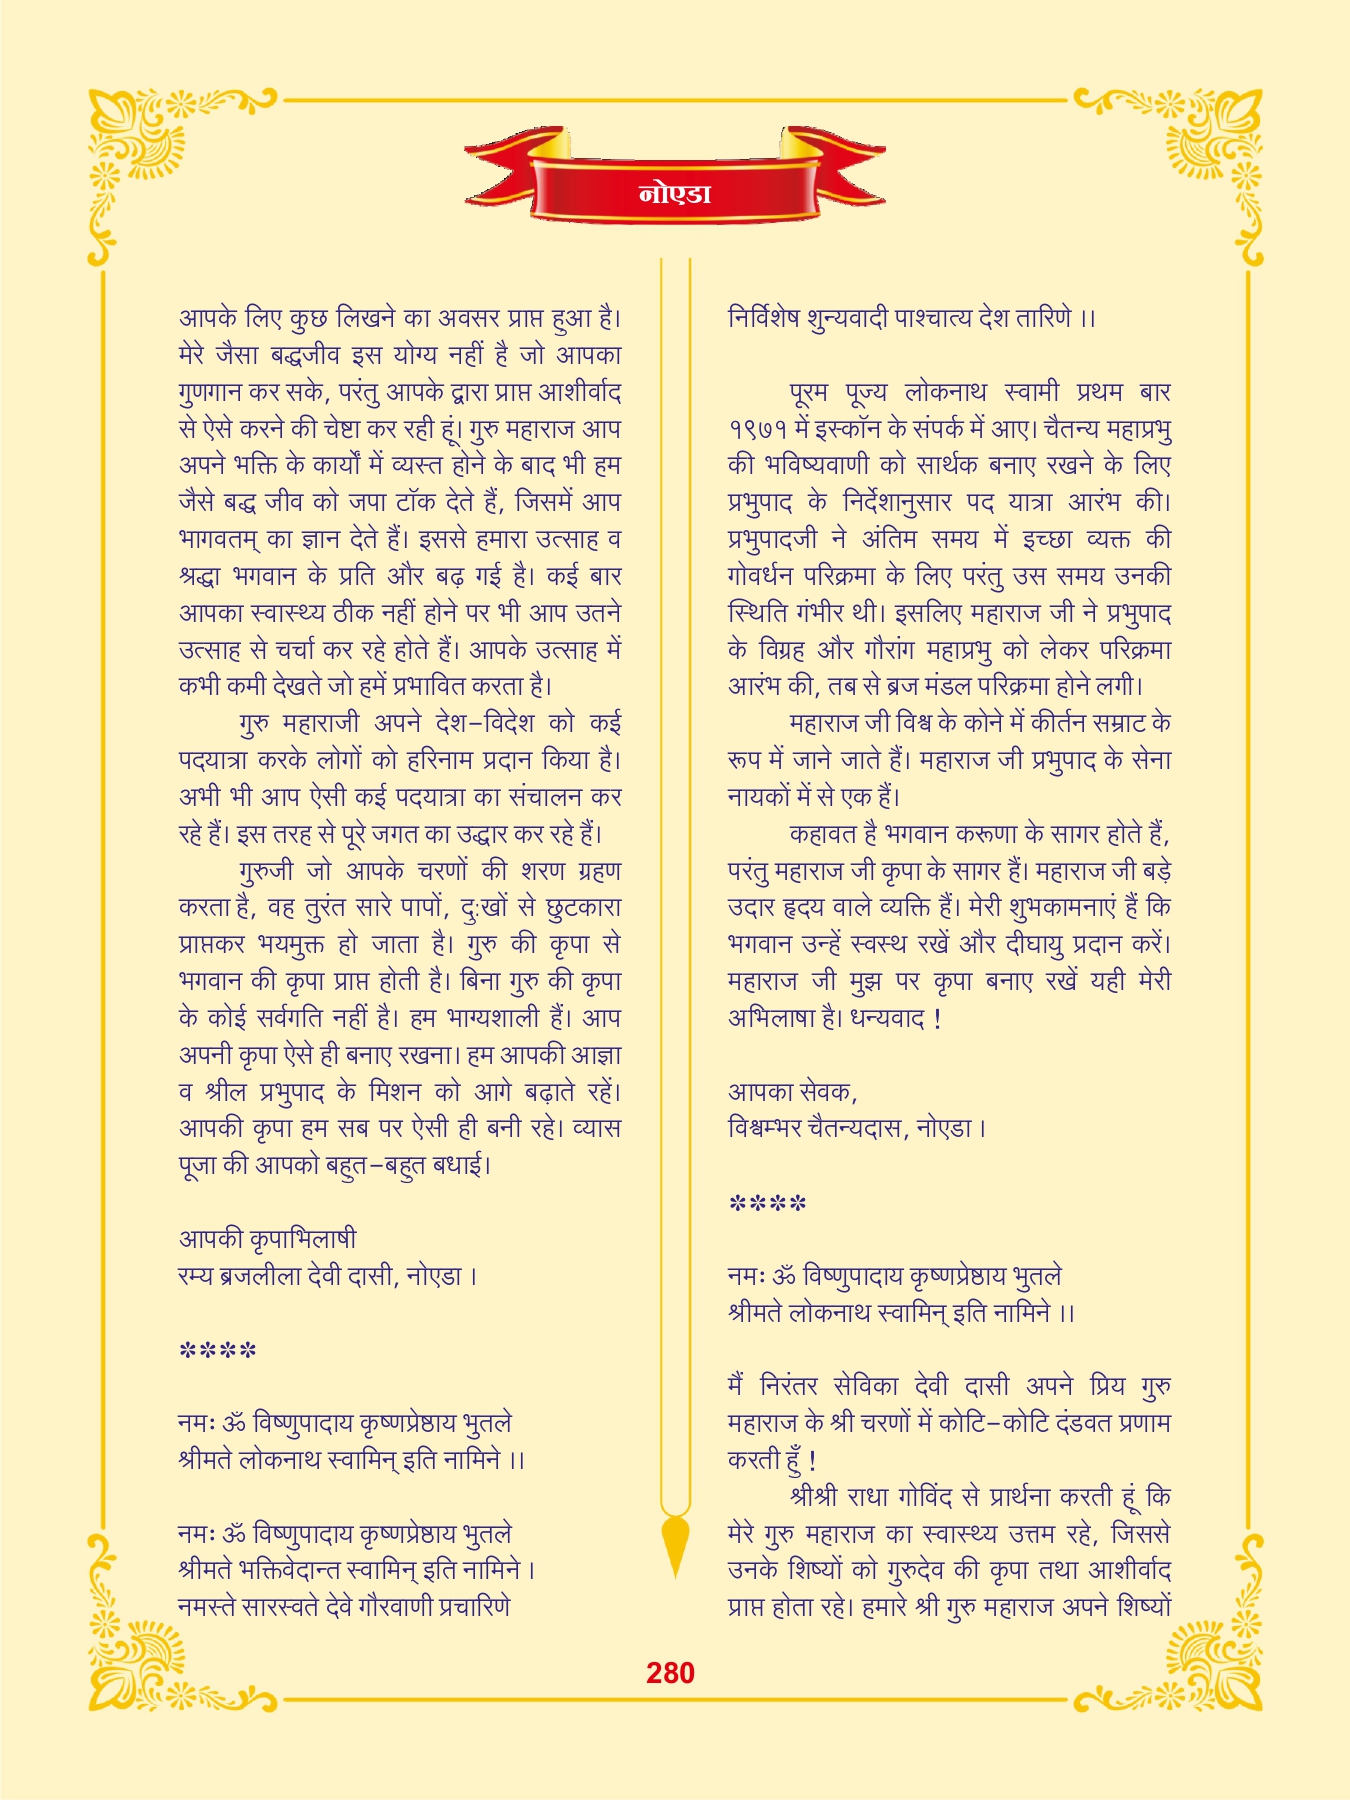 नोएडा
आपके लिए कुछ लिखने का अवसर प्राप्त हुआ है।
मेरे जैसा बद्धजीव इस योग्य नहीं है जो आपका
गुणगान कर सके, परंतु आपके द्वारा प्राप्त आशीर्वाद
से ऐसे करने की चेष्टा कर रही हूं। गुरु महाराज आप
अपने भक्ति के कार्यों में व्यस्त होने के बाद भी हम
जैसे बद्ध जीव को जपा टॉक देते हैं, जिसमें आप
भागवतम् का ज्ञान देते हैं। इससे हमारा उत्साह व
श्रद्धा भगवान के प्रति और बढ़ गई है। कई बार
आपका स्वास्थ्य ठीक नहीं होने पर भी आप उतने
उत्साह से चर्चा कर रहे होते हैं। आपके उत्साह में
कभी कमी देखते जो हमें प्रभावित करता है।
गुरु महाराजी अपने देश-विदेश को कई
पदयात्रा करके लोगों को हरिनाम प्रदान किया है।
अभी भी आप ऐसी कई पदयात्रा का संचालन कर
रहे हैं। इस तरह से पूरे जगत का उद्धार कर रहे हैं।
गुरुजी जो आपके चरणों की शरण ग्रहण
करता है, वह तुरंत सारे पापों, दु:खों से छुटकारा
प्राप्तकर भयमुक्त हो जाता है। गुरु की कृपा से
भगवान की कृपा प्राप्त होती है। बिना गुरु की कृपा
के कोई सर्वगति नहीं है। हम भाग्यशाली हैं। आप
अपनी कृपा ऐसे ही बनाए रखना। हम आपकी आज्ञा
व श्रील प्रभुपाद के मिशन को आगे बढ़ाते रहें।
आपकी कृपा हम सब पर ऐसी ही बनी रहे। व्यास
पूजा की आपको बहुत-बहुत बधाई।
आपकी कृपाभिलाषी
रम्य ब्रजलीला देवी दासी, नोएडा ।
****
नमः ॐ विष्णुपादाय कृष्णप्रेष्ठाय भुतले
श्रीमते लोकनाथ स्वामिन् इति नामिने ।।
नमः ॐ विष्णुपादाय कृष्णप्रेष्ठाय भुतले
श्रीमते भक्तिवेदान्त स्वामिन् इति नामिने ।
नमस्ते सारस्वते देवे गौरवाणी प्रचारिणे
निर्विशेष शुन्यवादी पाश्चात्य देश तारिणे ।।
पूरम पूज्य लोकनाथ स्वामी प्रथम बार
१९७१ में इस्कॉन के संपर्क में आए। चैतन्य महाप्रभु
की भविष्यवाणी को सार्थक बनाए रखने के लिए
प्रभुपाद के निर्देशानुसार पद यात्रा आरंभ की।
प्रभुपादजी ने अंतिम समय में इच्छा व्यक्त की
गोवर्धन परिक्रमा के लिए परंतु उस समय उनकी
स्थिति गंभीर थी। इसलिए महाराज जी ने प्रभुपाद
के विग्रह और गौरांग महाप्रभु को लेकर परिक्रमा
आरंभ की, तब से ब्रज मंडल परिक्रमा होने लगी।
महाराज जी विश्व के कोने में कीर्तन सम्राट के
रूप में जाने जाते हैं। महाराज जी प्रभुपाद के सेना
नायकों में से एक हैं।
कहावत है भगवान करूणा के सागर होते हैं,
परंतु महाराज जी कृपा के सागर हैं। महाराज जी बड़े
उदार हृदय वाले व्यक्ति हैं। मेरी शुभकामनाएं हैं कि
भगवान उन्हें स्वस्थ रखें और दीघायु प्रदान करें।
महाराज जी मुझ पर कृपा बनाए रखें यही मेरी
अभिलाषा है। धन्यवाद !
आपका सेवक,
विश्वम्भर चैतन्यदास, नोएडा ।
****
नमः ॐ विष्णुपादाय कृष्णप्रेष्ठाय भुतले
श्रीमते लोकनाथ स्वामिन् इति नामिने ।।
मैं निरंतर सेविका देवी दासी अपने प्रिय गुरु
महाराज के श्री चरणों में कोटि-कोटि दंडवत प्रणाम
करती हुँ !
श्रीश्री राधा गोविंद से प्रार्थना करती हूं कि
मेरे गुरु महाराज का स्वास्थ्य उत्तम रहे, जिससे
उनके शिष्यों को गुरुदेव की कृपा तथा आशीर्वाद
प्राप्त होता रहे। हमारे श्री गुरु महाराज अपने शिष्यों
280